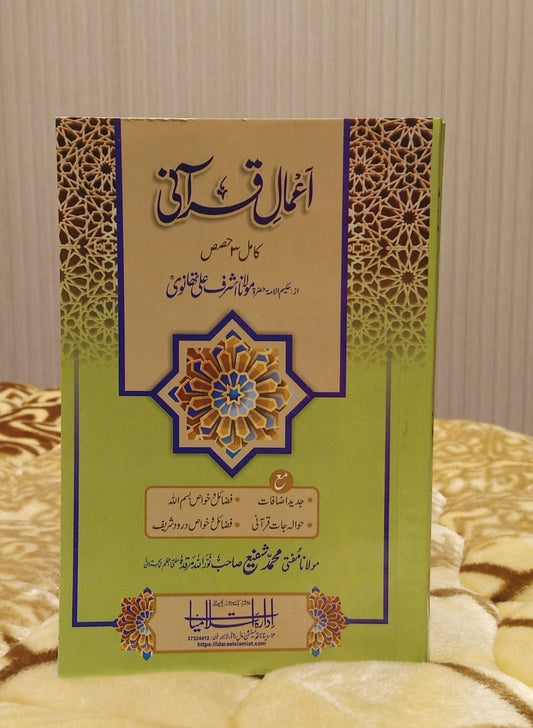 اَعمالِ قرآنی
کامل ۳ حصص
از: حکیم الامۃ حضرۃ مولانا اشرف علی تھانویؒ
مع
• جدید اضافات • فضائل و خواص بسم اللہ
• حوالہ جات قرآنی • فضائل و خواص درود شریف
مولانا مفتی محمد شفیع صاحب نور اللہ مرقدہٗ مفتی اعظم پاکستان
ادارۂ اسلامیات
37324412
https://idaraeislamiat.com